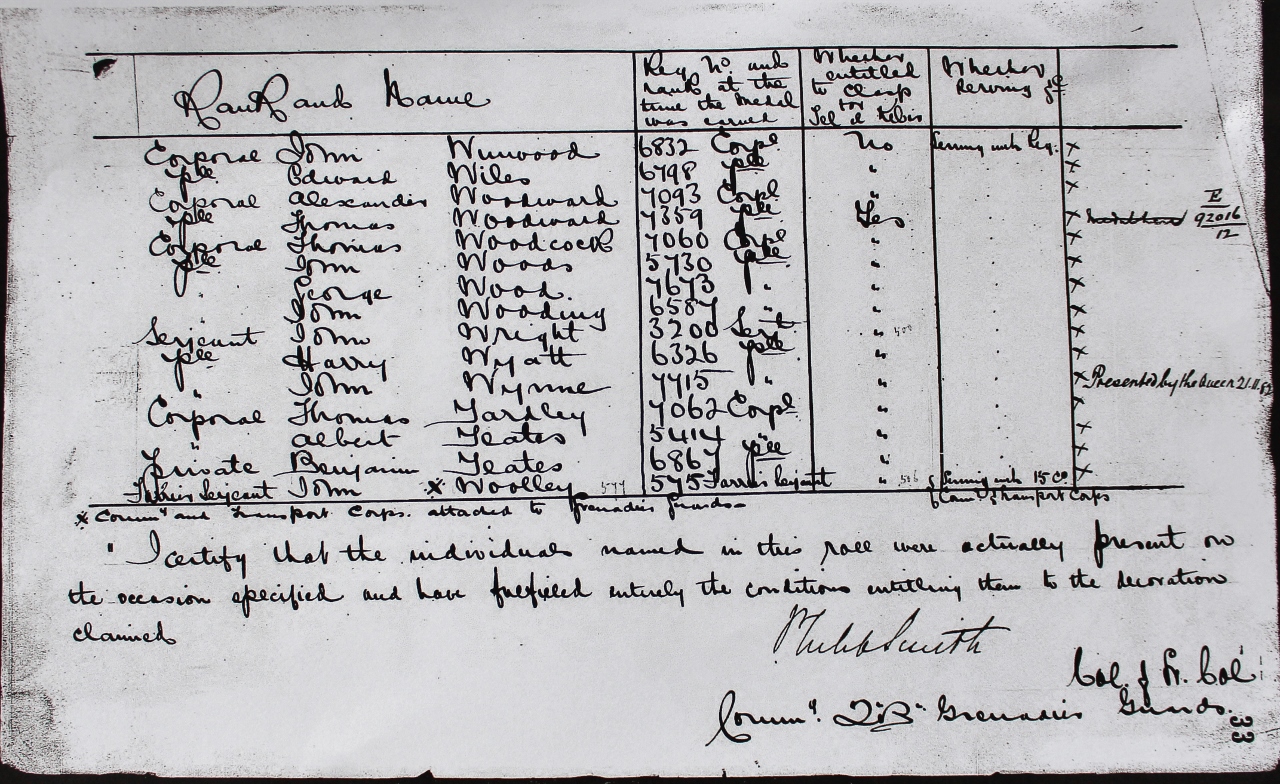 Rank and Name
Reg. No and rank at the time the medal was earned
Whether entitled to Clasp for Tel el Kebir
Whether serving &c
Corporal John Winwood 6832 Corpl No Serving with Reg. x
Pte Edward Wiles 6798 Pte " x
Corporal Alexander Woodward 7093 Corpl " x
Pte Thomas Woodward 7359 Pte Yes x E 92016/12
Corporal Thomas Woodcock 7060 Corpl " x
Pte John Woods 5730 Pte " x
" George Wood. 7673 " " x
" John Wooding 6587 " " x
Serjeant John Wright 3200 Serjt " x
Pte Harry Wyatt 6326 Pte " x
" John Wynne 7715 " " x Presented by the Queen 21.11.82
Corporal Thomas Yardley 7062 Corpl " x
" Albert Yeates 5414 " " x
Private Benjamin Yeates 6867 Pte " x
Farrier Serjeant John x Woolley 577 575 Farrier Serjeant " 506 Serving with 15 Co x
Comt & Transport Corps
x Commt and Transport Corps. attached to Grenadier Guards
"I certify that the individuals named in this roll were actually present on
the occasion specified and have fulfilled entirely the conditions entitling them to the decoration
claimed
Philip Smith
Col. & Lt. Col
Commg. 2d Bn Grenadier Guards.
33